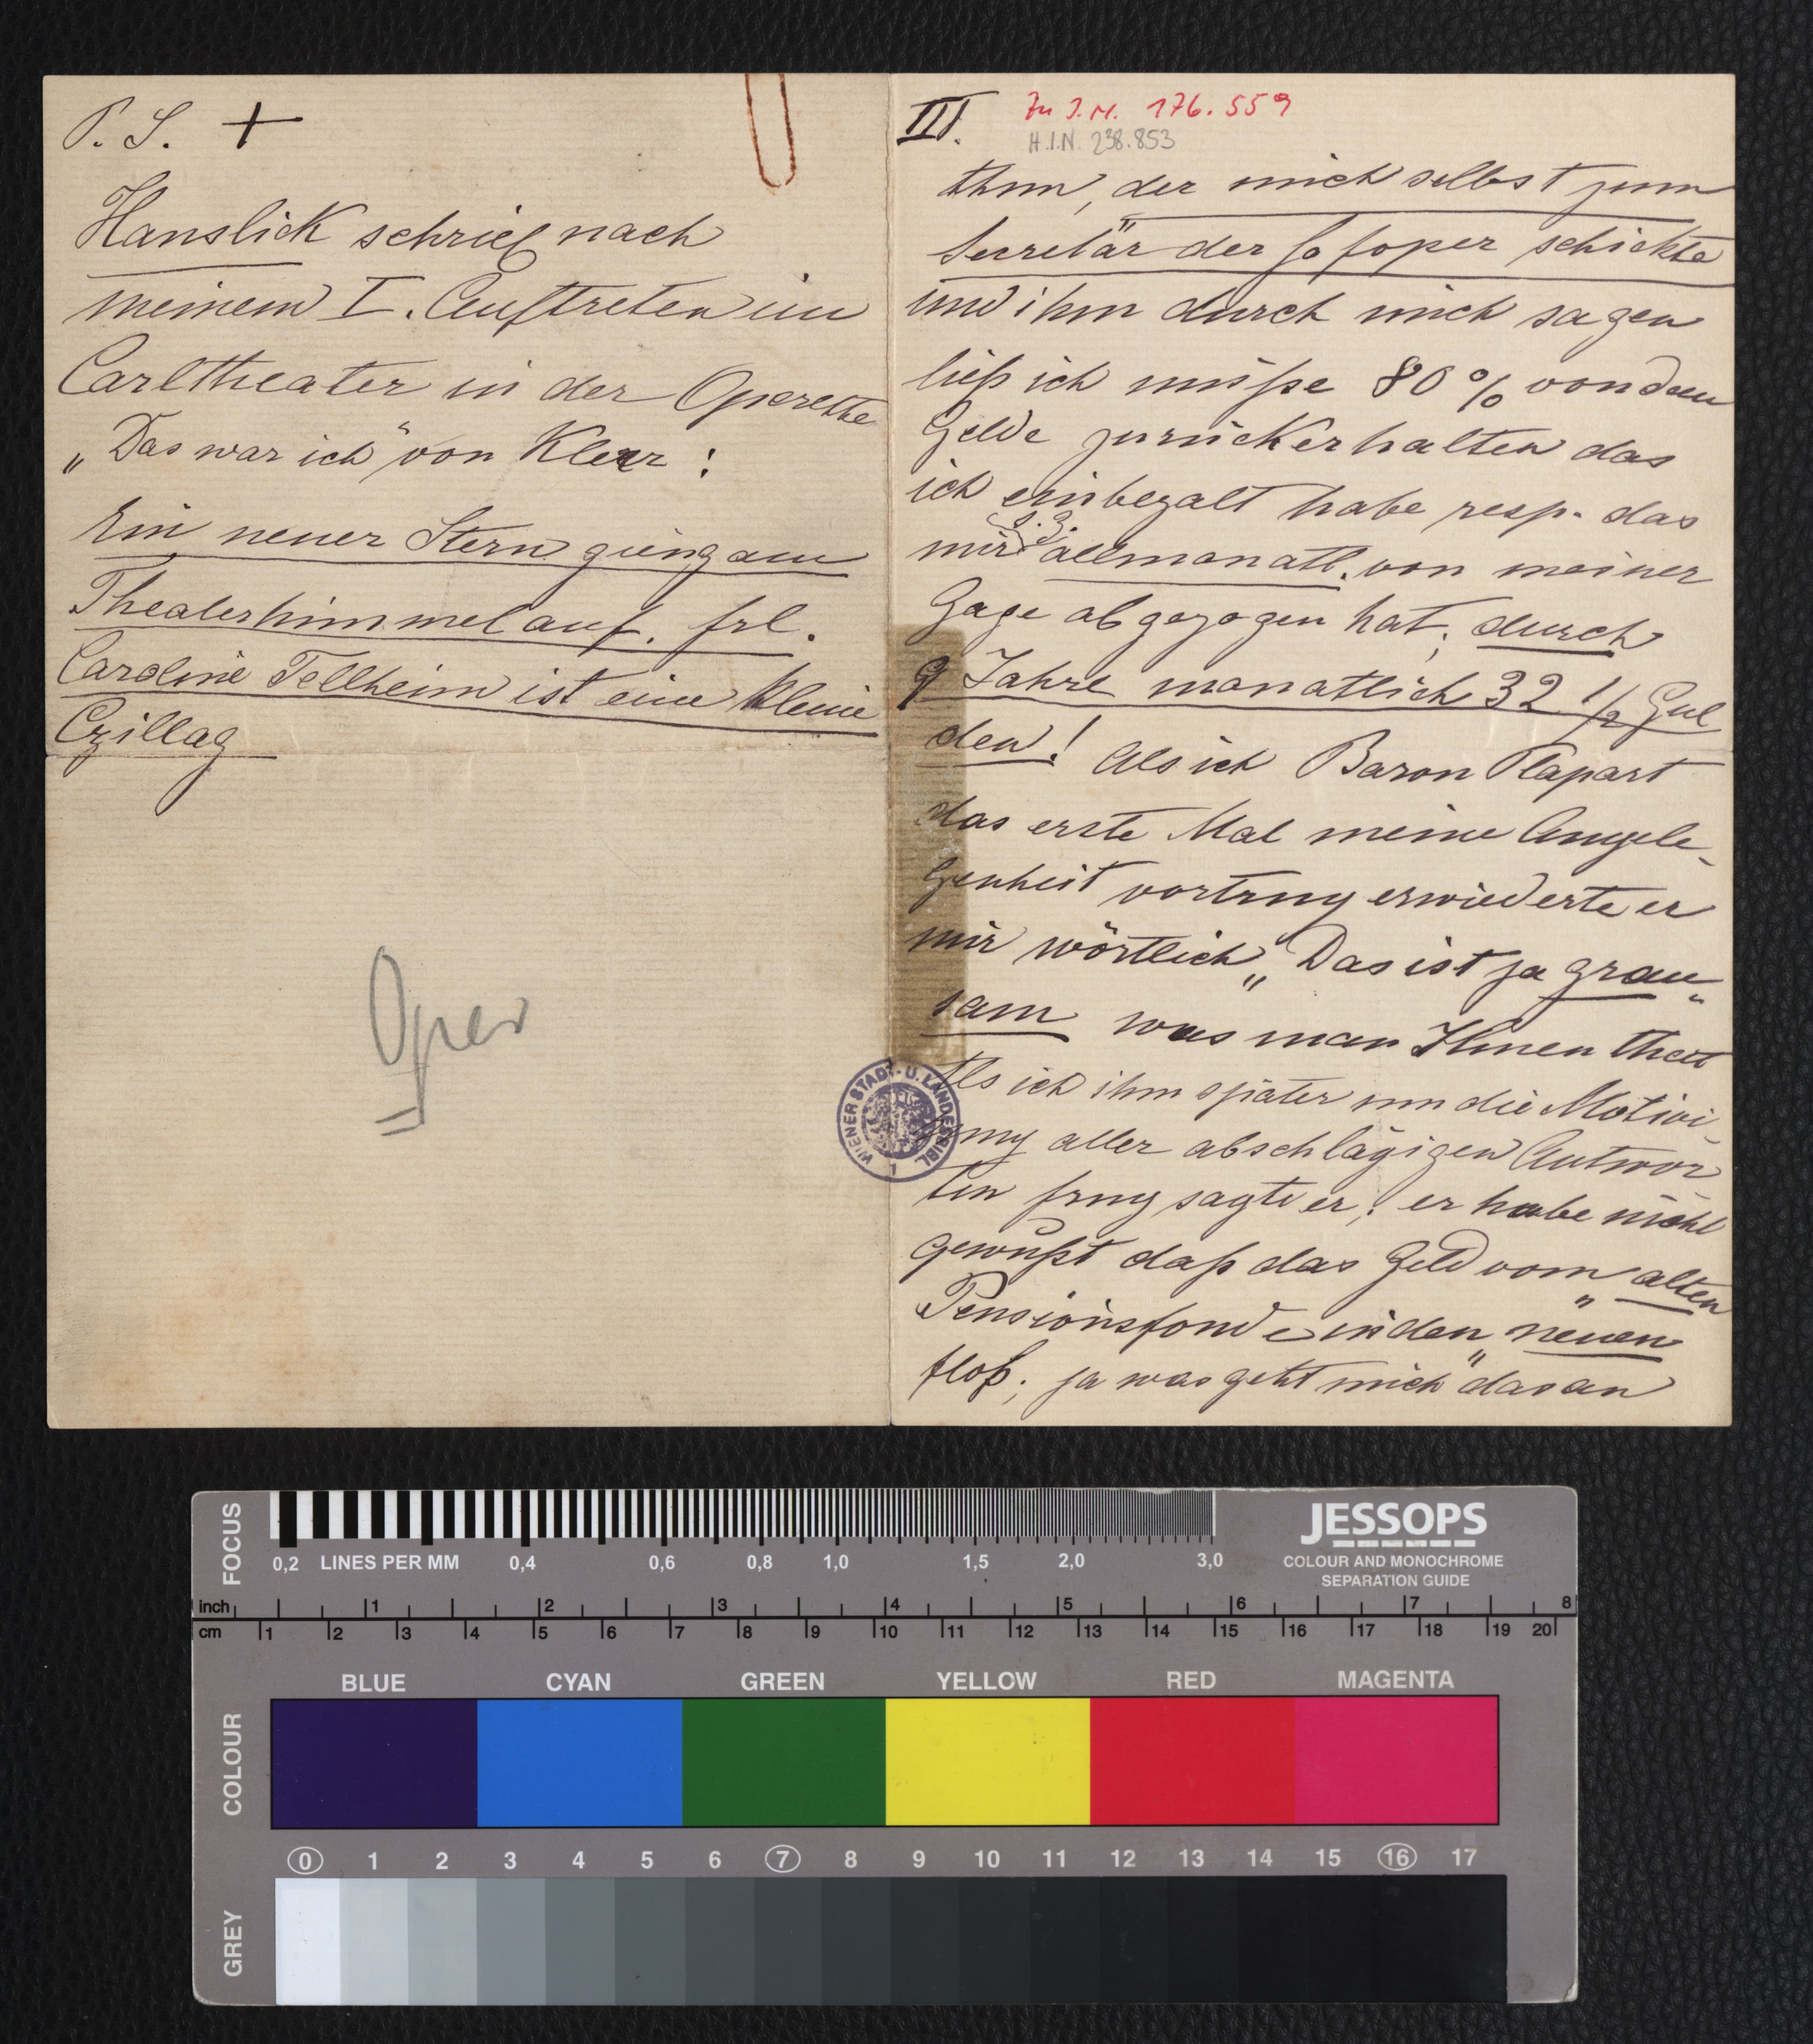 P. S. +
Hanslick schrieb nach
meinem I. Auftreten im
Carltheater in der Operette
„Das war ich“ von Klerr :
Ein neuer Stern gieng am
Theaterhimmel auf. Frl.
Caroline Tellheim ist eine kleine
Czillag
Oper
III.
Zu J.N. 176.559
H.I.N. 238.853
thun, der mich selbst zum
Secretär der Hofoper schickte
und ihm durch mich sagen
ließ ich müsse 80 % von dem
Gelde zurückerhalten das
ich einbezalt habe resp. das
s. Z.
mir allmonatl. von meiner
Gage abgezogen hat, durch
9 Jahre monatlich 32 1/2 Gul
den! Als ich Baron Plapart
das erste Mal meine Angele-
genheit vortrug erwiederte er
mir wörtlich „Das ist ja grau-
sam was man Ihnen thut
Als ich ihm später um die Motivi-
rung aller abschlägigen Antwor
ten frug sagte er; er habe nicht
gewußt daß das Geld vom „alten
Pensionsfond in den „neuen
floß; ja was geht mich das an
WIENER STADT- U. LANDESBIBL.
1
FOCUS
0,2 LINES PER MM 0,4 0,6 0,8 1,0 1,5 2,0 3,0
JESSOPS
COLOUR AND MONOCHROME
SEPARATION GUIDE
inch 1 2 3 4 5 6 7 8
cm 1 2 3 4 5 6 7 8 9 10 11 12 13 14 15 16 17 18 19 20
BLUE CYAN GREEN YELLOW RED MAGENTA
COLOUR
0 1 2 3 4 5 6 7 8 9 10 11 12 13 14 15 16 17
GREY